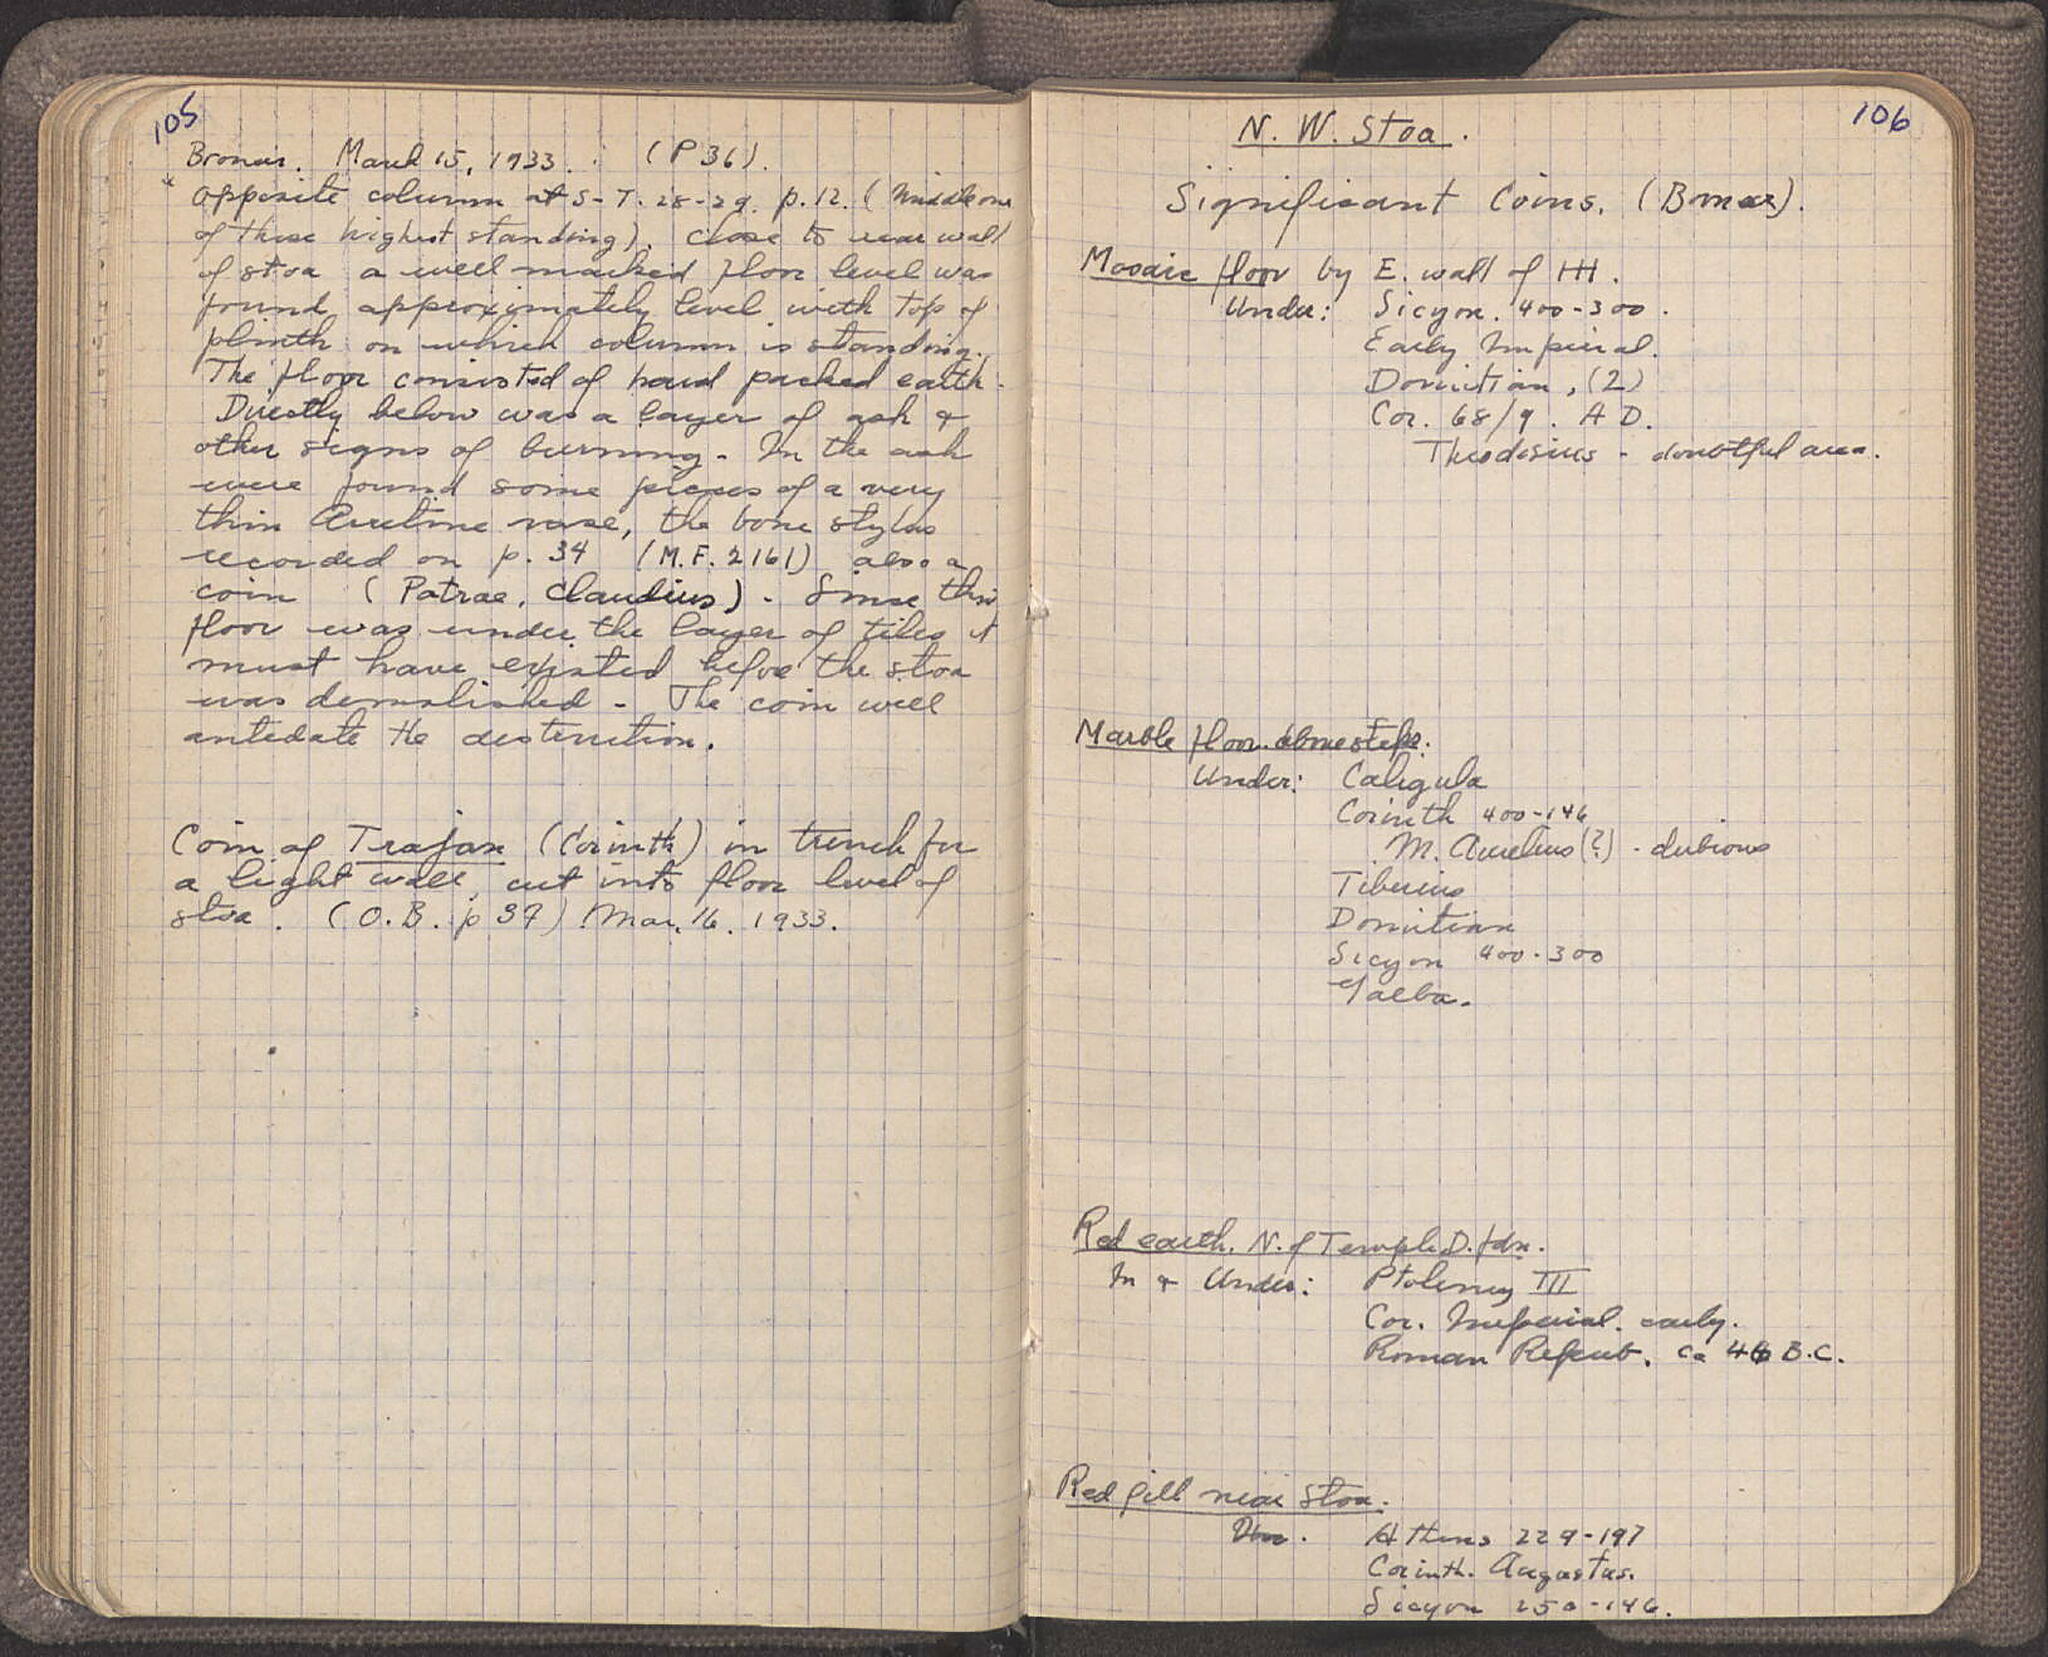 105
Broneer. March 15, 1933. (P 36).
* Opposite column at S-T. 28-29. p. 12. (Middle one
of three highest standing). Close to rear wall
of stoa a well marked floor level was
found approximately level with top of
plinth on which column is standing.
The floor consisted of hard packed earth.
Directly below was a layer of ash &
other signs of burning. In the ash
were found some pieces of a very
thin Arretine vase, the bone stylus
recorded on p. 34 (M.F. 2161) also a
coin (Patrae, Claudius). Since this
floor was under the layer of tiles it
must have existed before the stoa
was demolished. The coin will
antedate the destruction.
Coin of Trajan (Corinth) in trench for
a light wall, cut into floor level of
stoa. (O.B. p 37) Mar. 16. 1933.
106
N. W. Stoa.
Significant Coins. (Broneer).
Mosaic floor by E. wall of HH.
Under: Sicyon. 400-300.
Early Imperial.
Domitian, (2)
Cor. 68/9. A D.
Theodosius - doubtful area.
Marble floor above steps:
Under: Caligula
Corinth 400-146
M. Aurelius (?) - dubious
Tiberius
Domitian
Sicyon 400-300
Galba.
Red earth. N. of Temple D. fdn.
In & Under: Ptolemy III
Cor. Imperial. early.
Roman Repub. ca 46 B.C.
Red fill near Stoa.
Athens 229-197
Corinth. Augustus.
Sicyon 250-146.